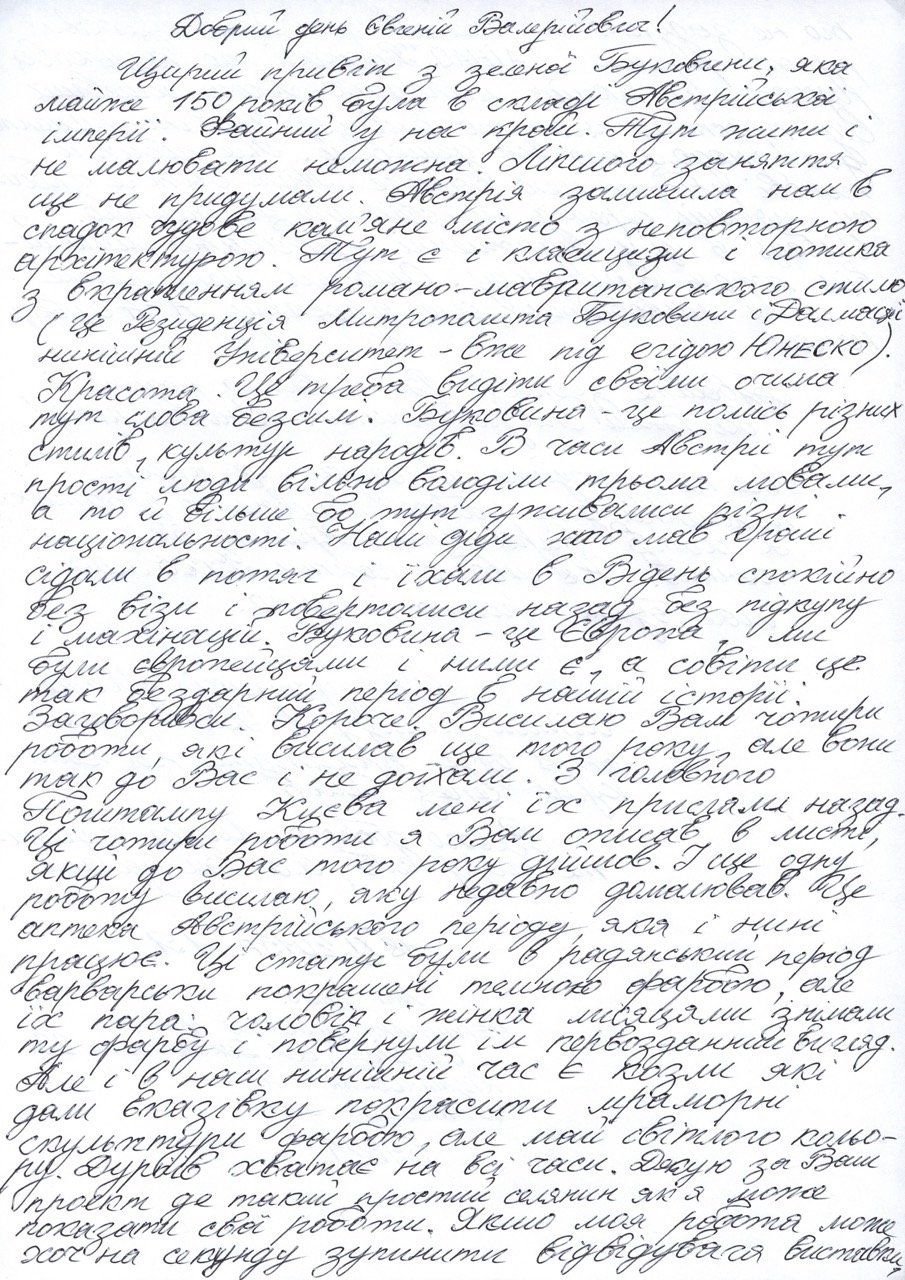 Добрий день Євгеній Валерійович!
Щирий привіт з зеленої Буковини, яка
майже 150 років була в складі Австрійської
імперії. Файний у нас край. Тут жити і
не малювати неможна. Ліпшого заняття
ще не придумали. Австрія залишила нам в
спадок чудове кам'яне місто з неповторною
архітектурою. Тут є і класицизм і готика
з вкрапленням романо-мавританського стилю
(Це Резиденція Митрополита Буковини і Далмації
нинішній Університет - вже під егідою ЮНЕСКО).
Красота. Це треба видіти своїми очима
тут слова безсилі. Буковина - це помісь різних
стилів, культур народів. В часи Австрії тут
прості люди вільно володіли трьома мовами,
а то й більше бо тут уживалися різні
національності. Наші діди хто мав гроші
сідали в потяг і їхали в Відень спокійно
без візи і поверталися назад без підкупу
і махінацій. Буковина - це Європа, ми
були європейцями і ними є, а совіти це
так бездарний період в нашій історії.
Заговорився. Короче. Висилаю Вам чотири
роботи, які висилав ще того року, але вони
так до Вас і не доїхали. З головного
Поштампу Києва мені їх прислали назад.
Ці чотири роботи я Вам описав в листі,
який до Вас того року дійшов. І ще одну
роботу висилаю, яку недавно домалював. Це
аптека Австрійського періоду, яка і нині
працює. Ці статуї були в радянський період
варварськи покрашені темною фарбою, але
їх пара: чоловік і жінка місяцями знімали
ту фарбу і повернули їм первозданний вигляд.
Але і в наш нинішній час є козли які
дали вказівку покрасити мраморні
скульптури фарбою, але май світлого кольо-
ру. Дураків хватає на всі часи. Дякую за Ваш
проєкт де такий простий селянин як я може
показати свої роботи. Якшо моя робота може
хоч на секунду зупинити відвідувача виставки,